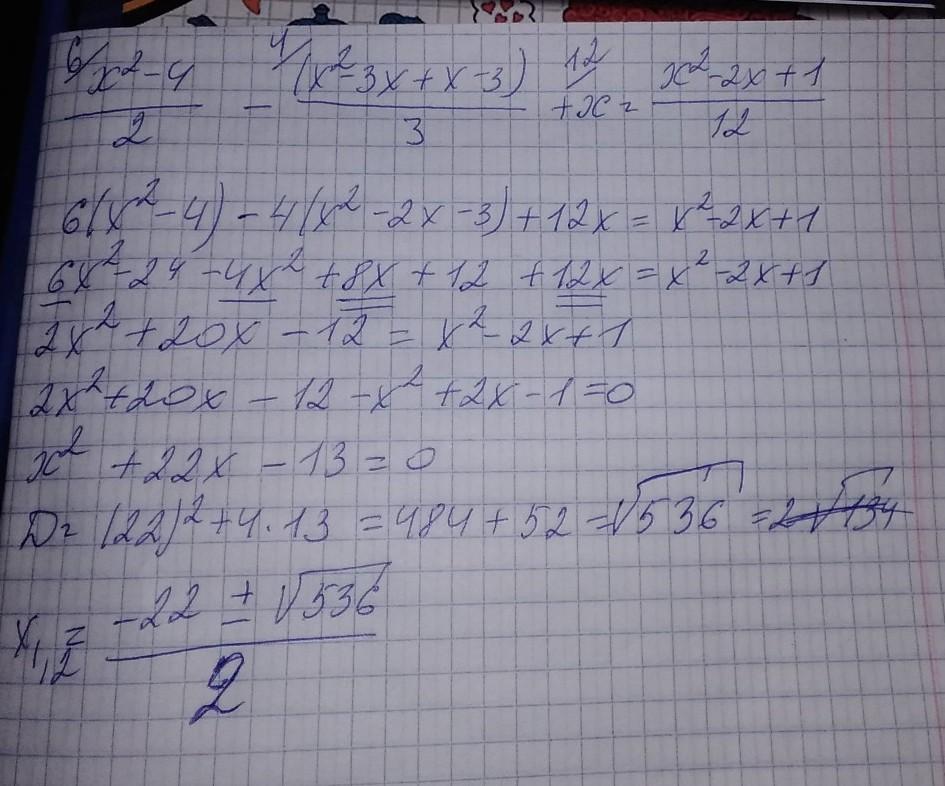 6/ x²-4 / 2 - 4/ (x²-3x+x-3) / 3 12/ +x = x²-2x+1 / 12
6(x²-4)-4(x²-2x-3)+12x = x²-2x+1
6x²-24-4x²+8x+12+12x = x²-2x+1
2x²+20x-12 = x²-2x+1
2x²+20x-12-x²+2x-1=0
x²+22x-13=0
D= (22)²+4·13 = 484+52 = √536 = 2√134
x₁,₂ = -22 ± √536 / 2